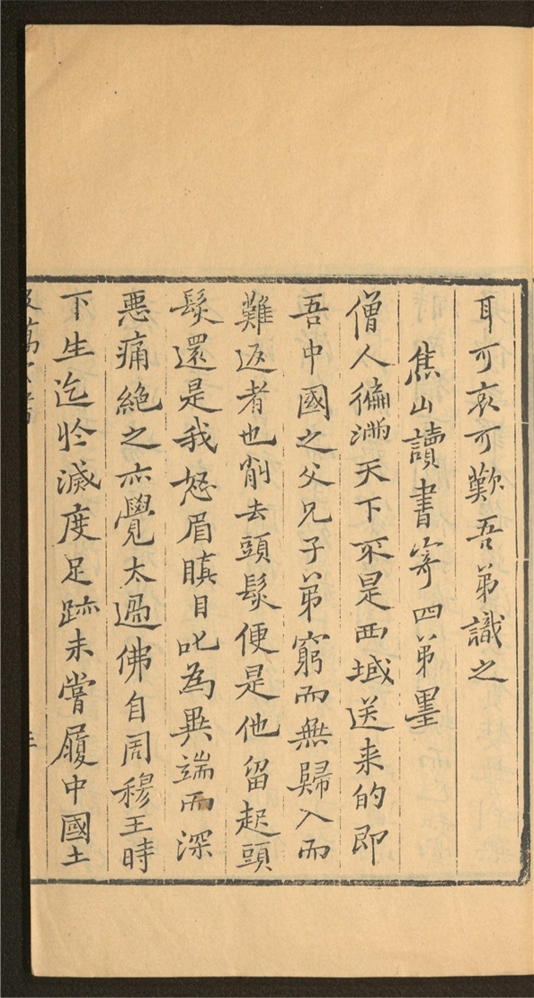 耳可哀可歎吾弟識之
焦山讀書寄四弟墨
僧人徧滿天下不是西域送来的即
吾中國之父兄子弟窮而無歸入而
難返者也削去頭髮便是他留起頭
髮還是我怒眉瞋目叱為異端而深
惡痛絕之亦覺太過佛自周穆王時
下生迄於滅度足跡未嘗履中國土